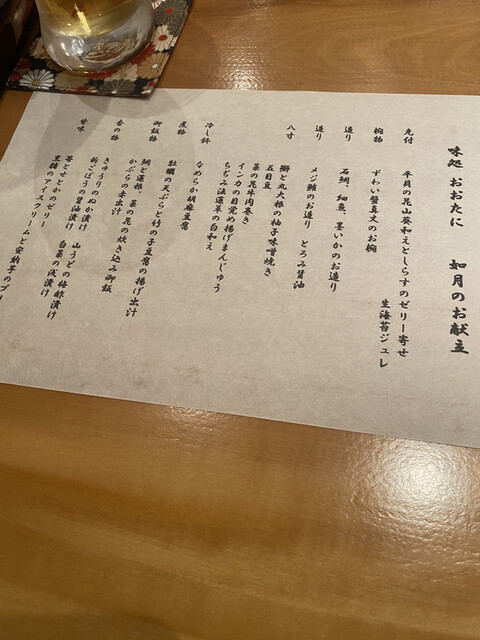 味処 おおたに 如月のお献立
先付 平貝の昆山葵和えとしらすのゼリー寄せ
生海苔ジュレ
椀物 ずわい蟹真丈のお椀
造り 石鯛、細魚、墨いかのお造り
造り メジ鮪のお造り とろみ醤油
八寸 鰤と丸大根の柚子味噌焼き
五目豆
菜の花牛肉巻き
インカの目覚め揚げまんじゅう
ちぢみ法蓮草の白和え
冷し鉢 なめらか胡麻豆腐
煮物 牡蠣の天ぷらと竹の子豆腐の揚げ出汁
御飯物 鯛と蓮根、菜の花の炊き込み御飯
かぶらの赤出汁
香の物 きゅうりのぬか漬け 山うどの梅酢漬け
新ごぼうの醤油漬け 白菜の浅漬け
甘味 苺とせとかのゼリー
黒糖のアイスクリームと安納芋のプリ